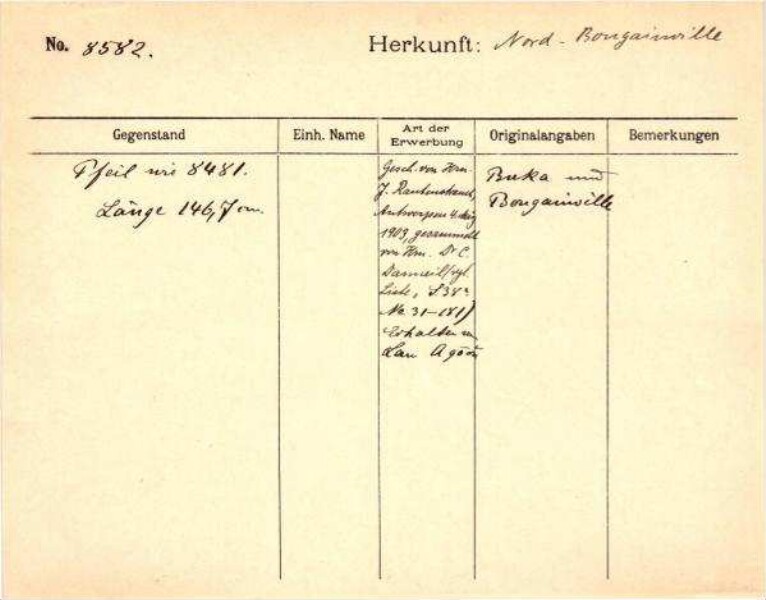 No. 8582.
Herkunft: Nord-Bougainville
Gegenstand
Einh. Name
Art der Erwerbung
Originalangaben
Bemerkungen
Pfeil wie 8481.
Länge 146,7 cm.
Gesch. von Hrn.
J. Rautenstrauch,
Antwerpen 4. Aug
1909, gesammelt
von Hrn. Dr C.
Danneil (vgl.
Liste, S 38a
No 31-181)
Erhalten
Lau
Buka und
Bougainville